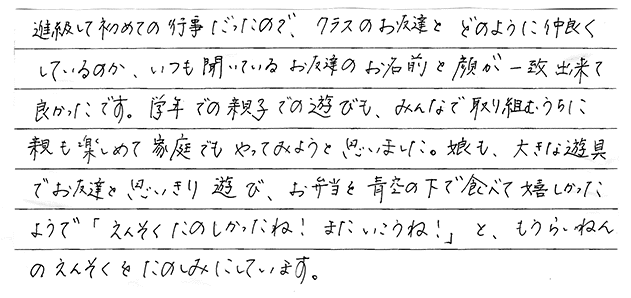 進級して初めての行事だったので、クラスのお友達と どのように仲良く
しているのか、いつも聞いている お友達のお名前と顔が一致出来て
良かったです。学年での親子での遊びも、みんなで取り組むうちに
親も楽しめて家庭でもやってみようと思いました。娘も、大きな遊具
でお友達と思いきり遊び、お弁当を青空の下で食べて嬉しかった
ようで「えんそくたのしかったね！またいこうね！」と、もうらいねん
のえんそくをたのしみにしています。